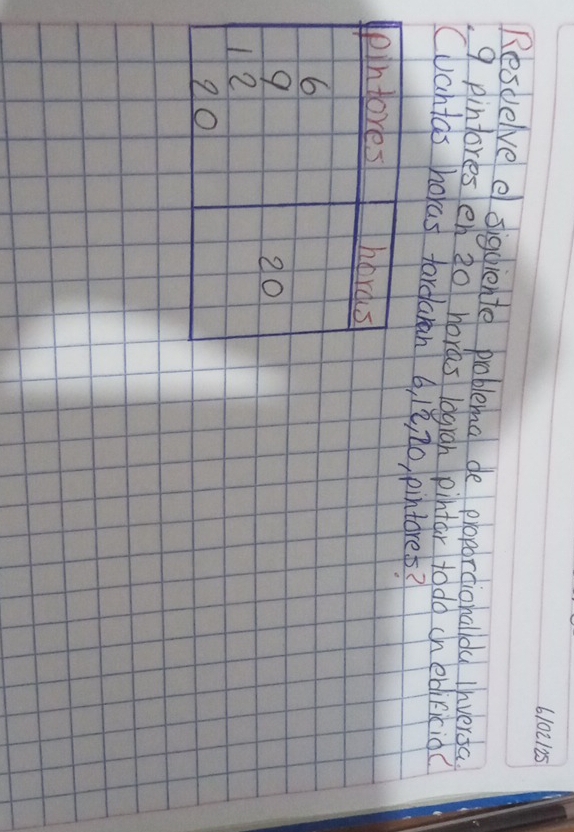 6/02/25
Resuelve el siguiente problema de proporcionalida inversa.
. 9 pintores en 20 horas logran pintar todo un edificio?
Cuantas horas tardaran 6, 12, 20, pintores?
pintores horas
6
9 20
12
20